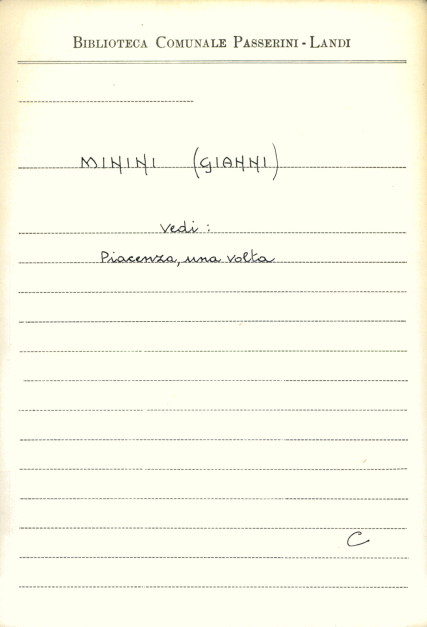 BIBLIOTECA COMUNALE PASSERINI - LANDI
MININI (GIANNI)
vedi :
Piacenza, una volta
C